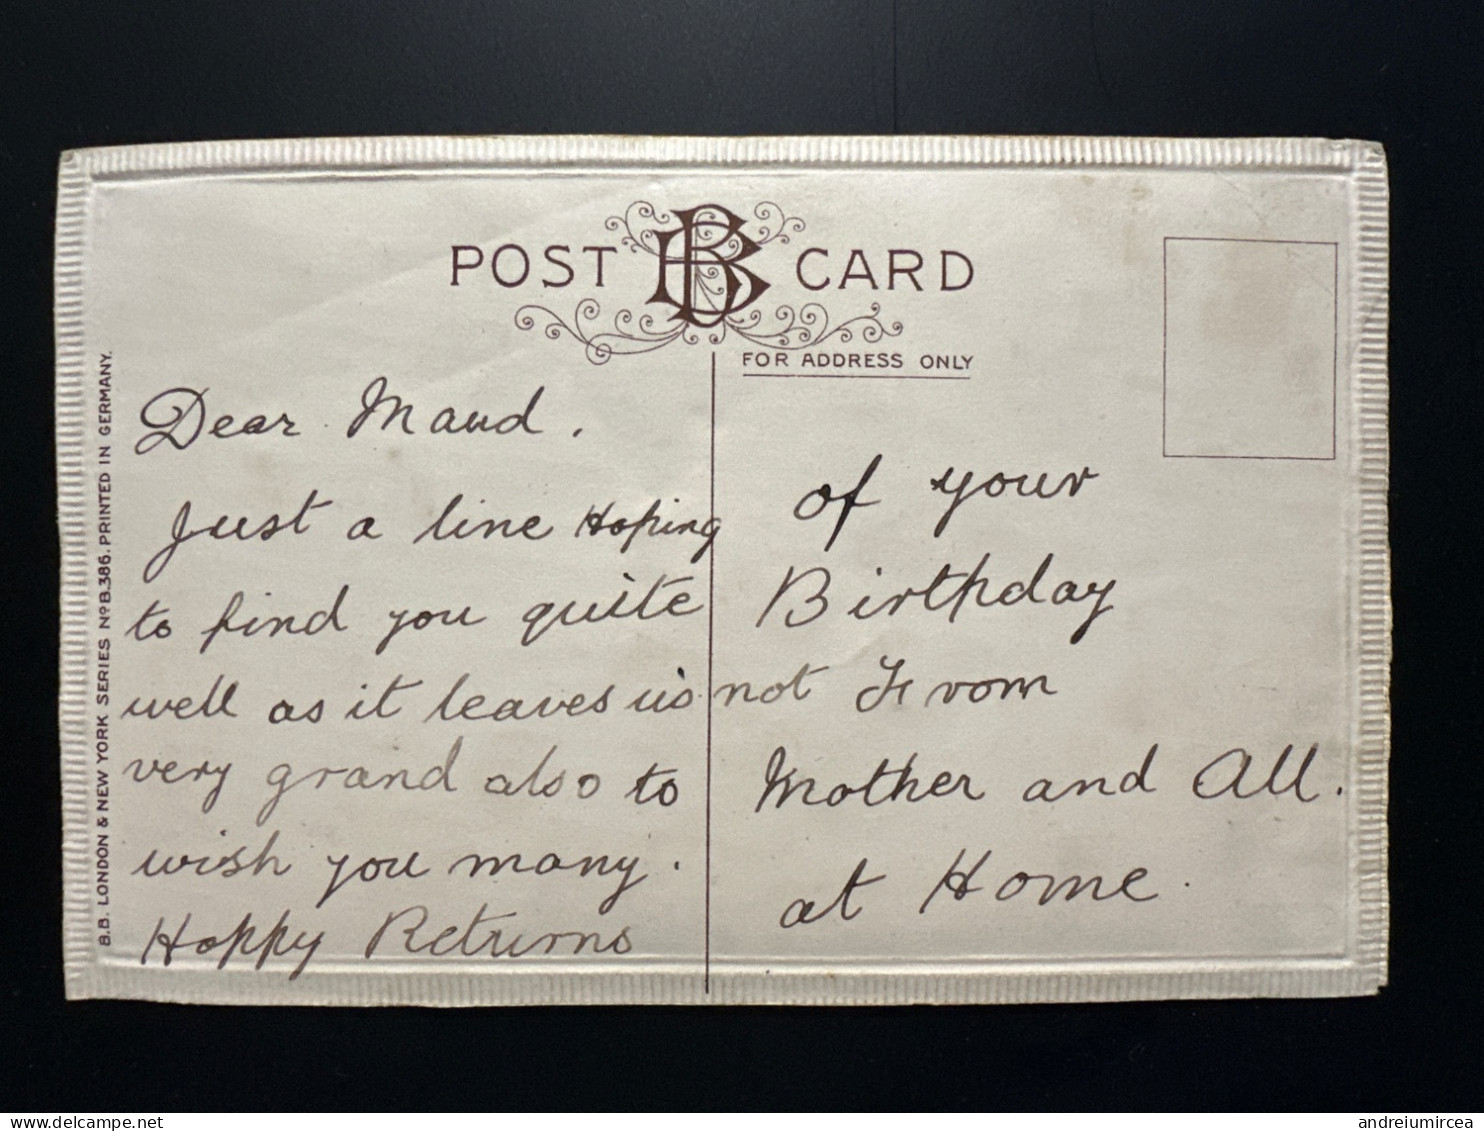 POST CARD
FOR ADDRESS ONLY
B.B. LONDON & NEW YORK SERIES Nº B.386. PRINTED IN GERMANY.
Dear Maud.
Just a line Hoping
to find you quite
well as it leaves us not
very grand also to
wish you many.
Happy Returns
of your
Birthday
From
Mother and All.
at Home.
delcampe.net
andreiumircea